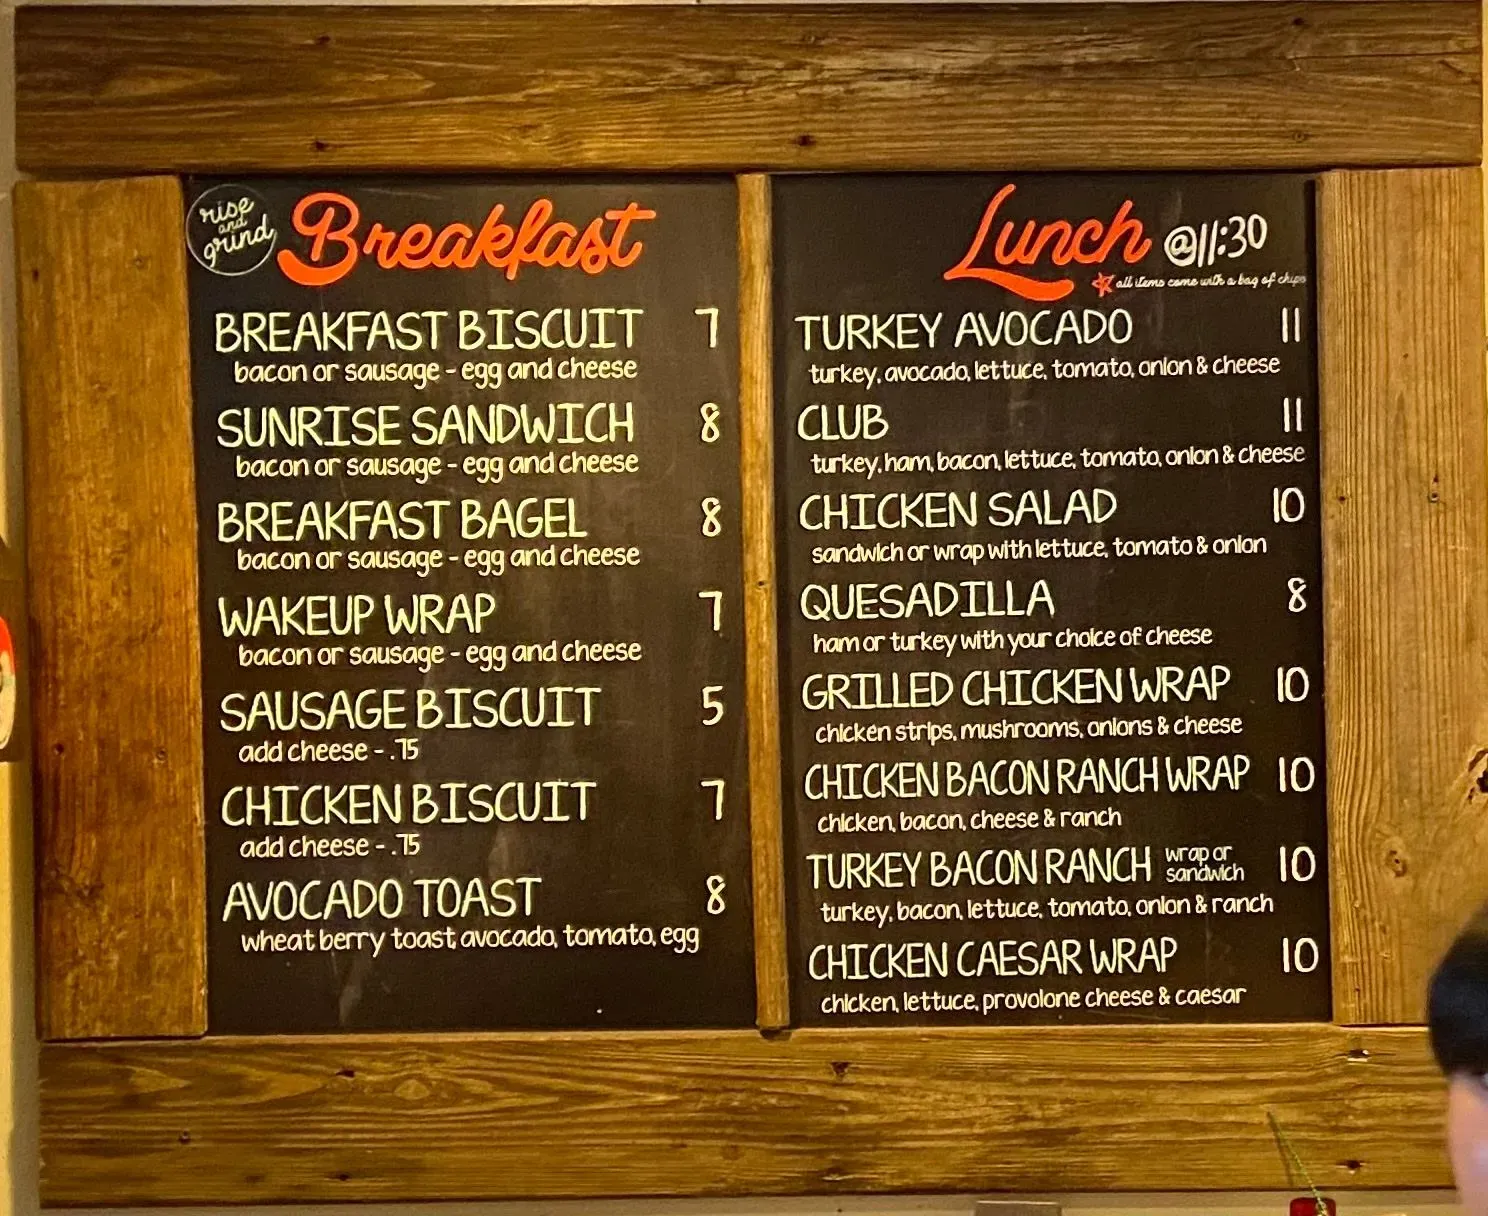 rise
and
grind
Breakfast
BREAKFAST BISCUIT 7
bacon or sausage - egg and cheese
SUNRISE SANDWICH 8
bacon or sausage - egg and cheese
BREAKFAST BAGEL 8
bacon or sausage - egg and cheese
WAKEUP WRAP 7
bacon or sausage - egg and cheese
SAUSAGE BISCUIT 5
add cheese - .75
CHICKEN BISCUIT 7
add cheese - .75
AVOCADO TOAST 8
wheat berry toast, avocado, tomato, egg
Lunch @11:30
all items come with a bag of chips
TURKEY AVOCADO 11
turkey, avocado, lettuce, tomato, onion & cheese
CLUB 11
turkey, ham, bacon, lettuce, tomato, onion & cheese
CHICKEN SALAD 10
sandwich or wrap with lettuce, tomato & onion
QUESADILLA 8
ham or turkey with your choice of cheese
GRILLED CHICKEN WRAP 10
chicken strips, mushrooms, onions & cheese
CHICKEN BACON RANCH WRAP 10
chicken, bacon, cheese & ranch
TURKEY BACON RANCH wrap or sandwich 10
turkey, bacon, lettuce, tomato, onion & ranch
CHICKEN CAESAR WRAP 10
chicken, lettuce, provolone cheese & caesar